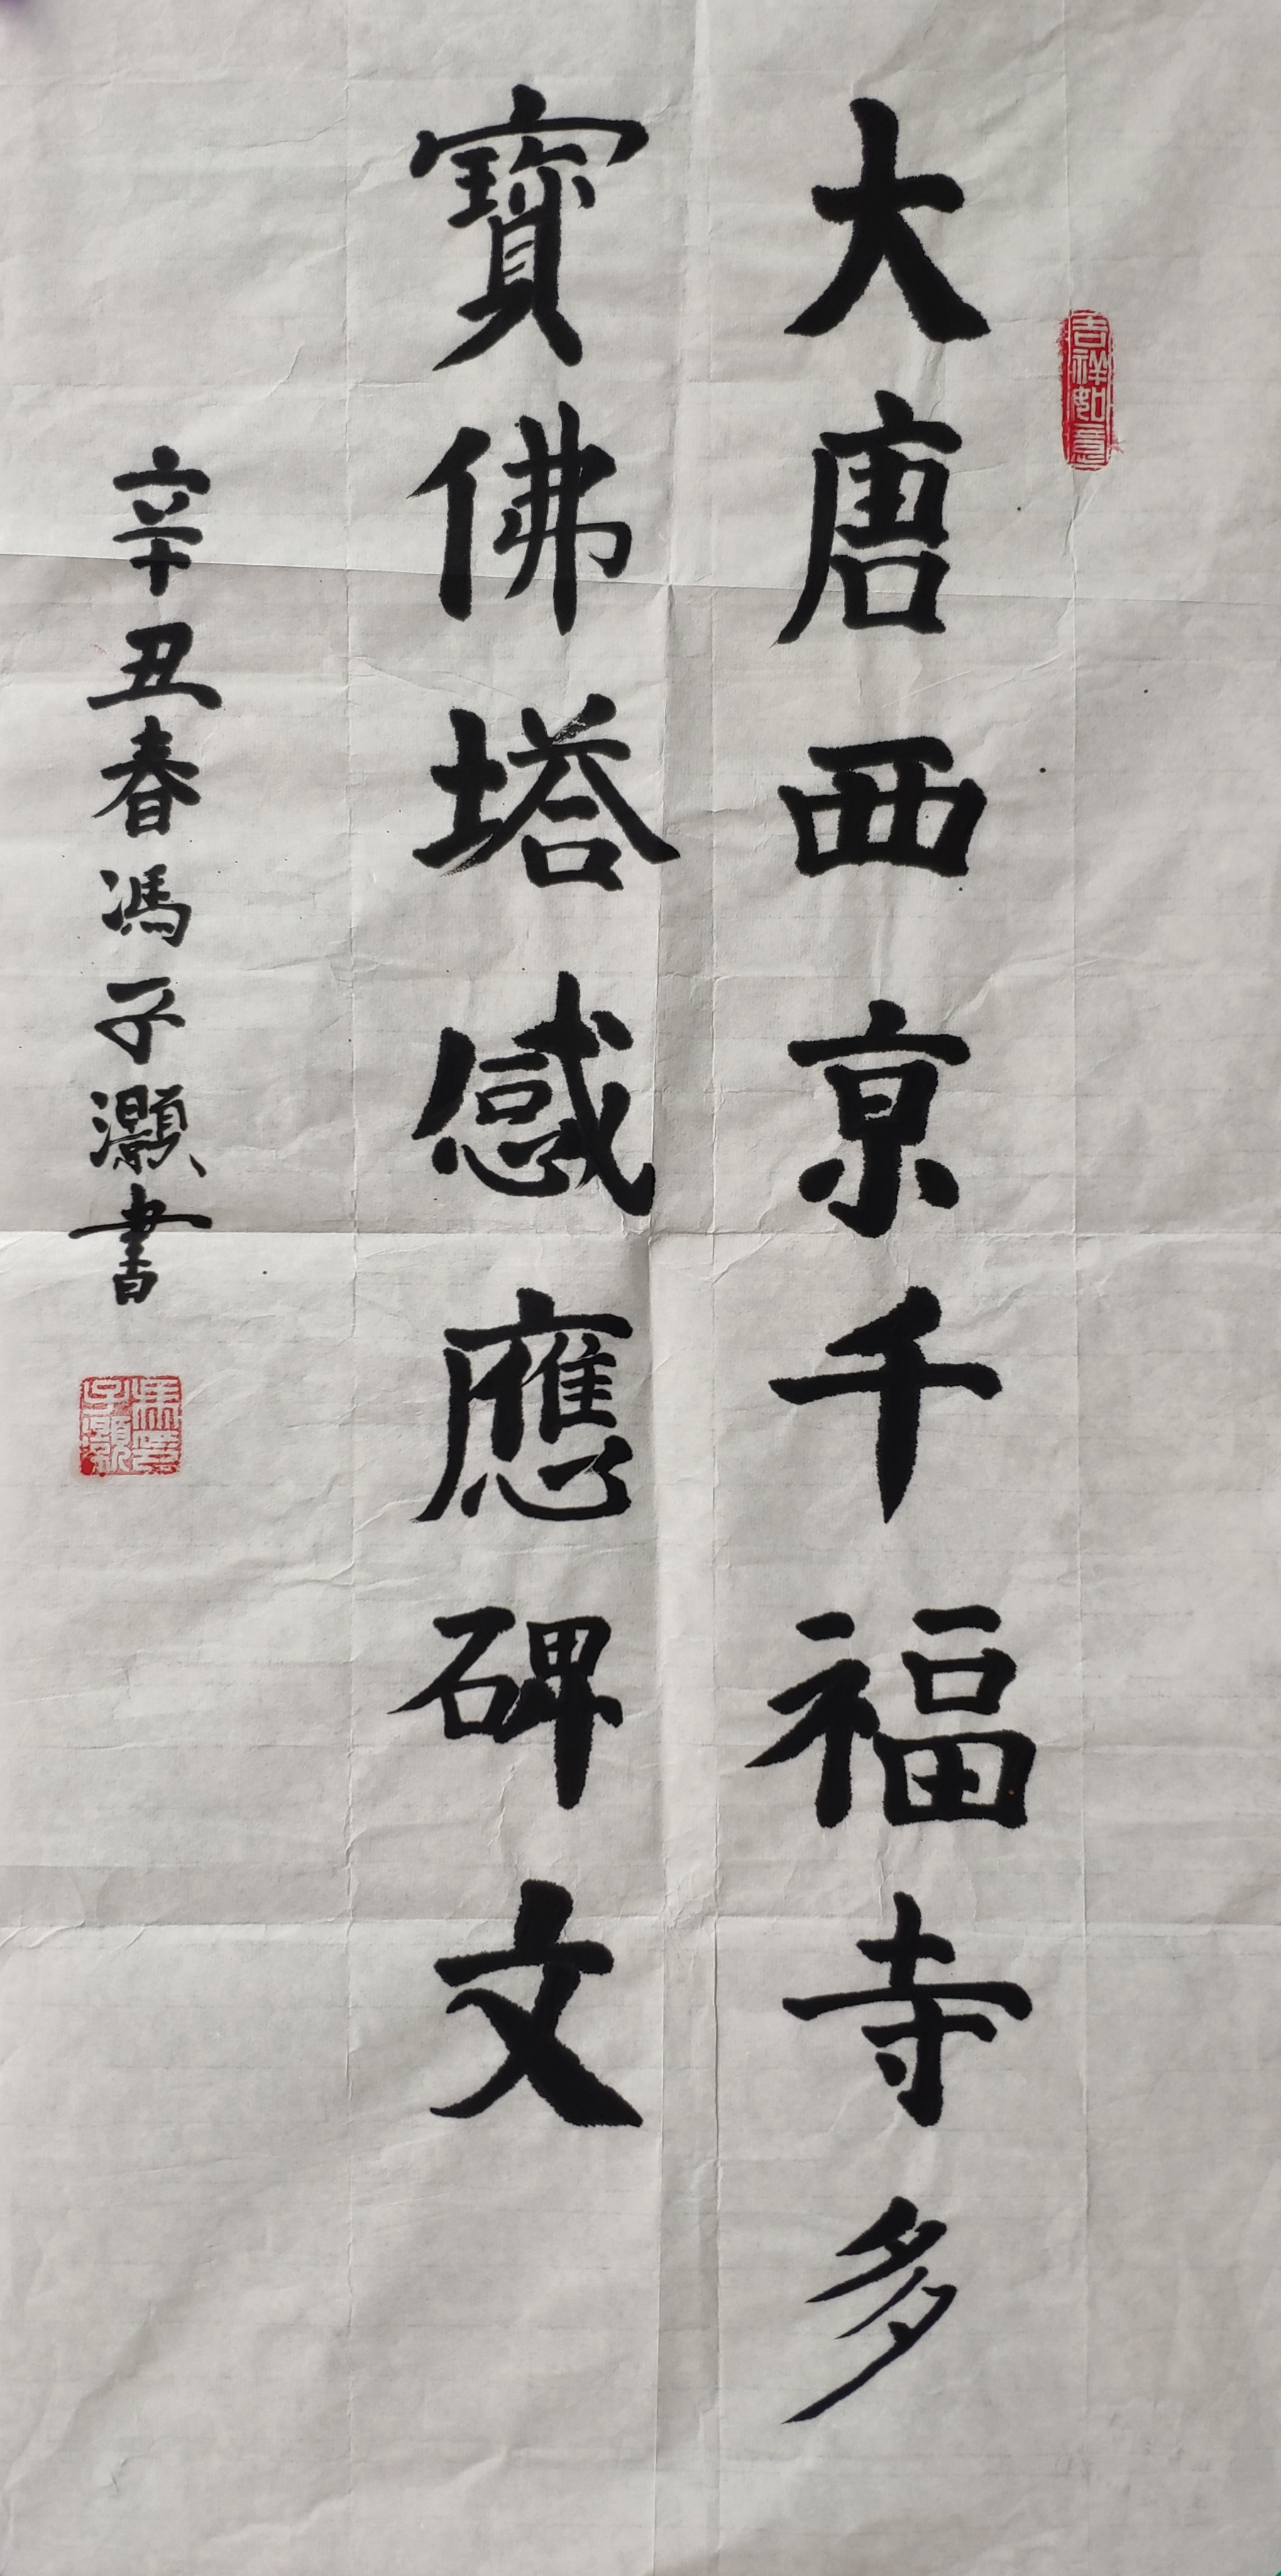 大唐西京千福寺多
寶佛塔感應碑文
辛丑春馮子灝書
吉祥如意